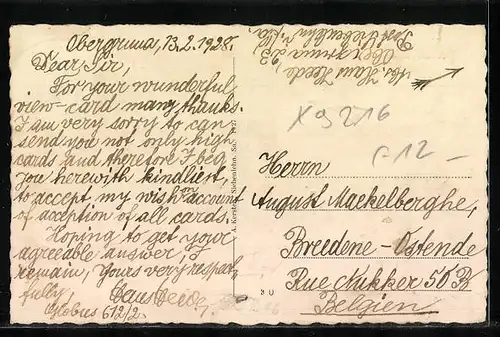 Obergruna, 13.2.1928.
Dear Sir,
For your wunderful
view-card many thanks.
I am very sorry to can
send you not only high
cards and therefore I beg
you herewith kindliest,
to accept my wish on account
of acception of all cards.
Hoping to get your
agreable answer, I
remain, Yours very respect
fully,
Hans Heede,
Globus 612/2.
Abs. Hans Heede,
Obergruna 23
Post Siebenlehn i/Sa.
X 9 216
Herrn
August Maekelberghe,
Breedene-Ostende
Rue Kukker 50 B
Belgien